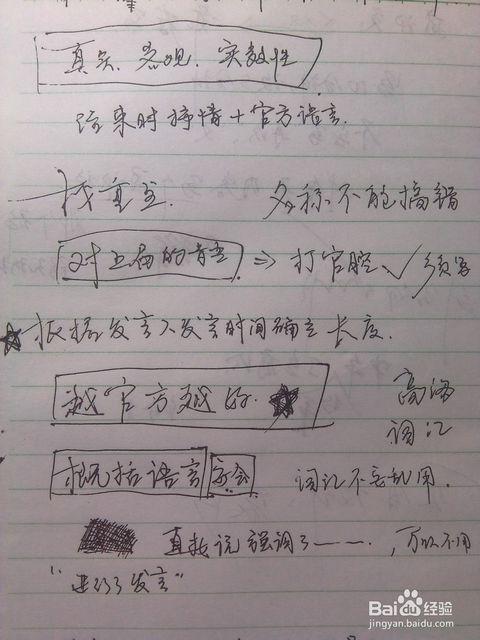 真实、客观、实效性
结束时抒情+官方语言.
找重点. 名称不能搞错
对上届的肯定 ⇒ 打官腔✓ 须写
☆根据发言人发言时间确定长度.
越官方越好. ☆ 高级
词汇
概括语言 学会 词汇不要乱用.
直接说强调了——.,可以不用
"进行了发言"
Baidu经验
jingyan.baidu.com